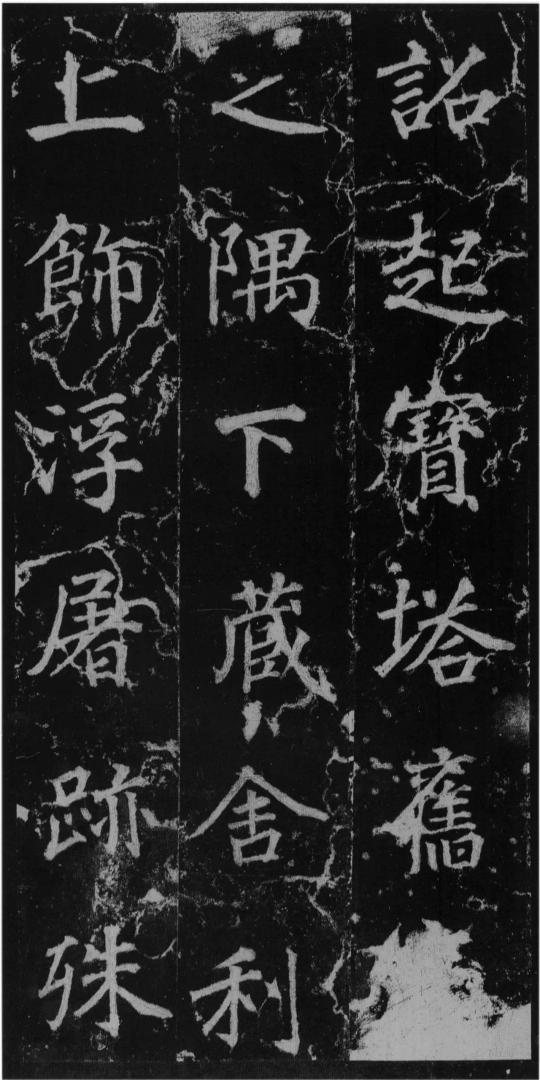 詔起寶塔舊
之隅下蔵舎利
上飾浮屠跡殊